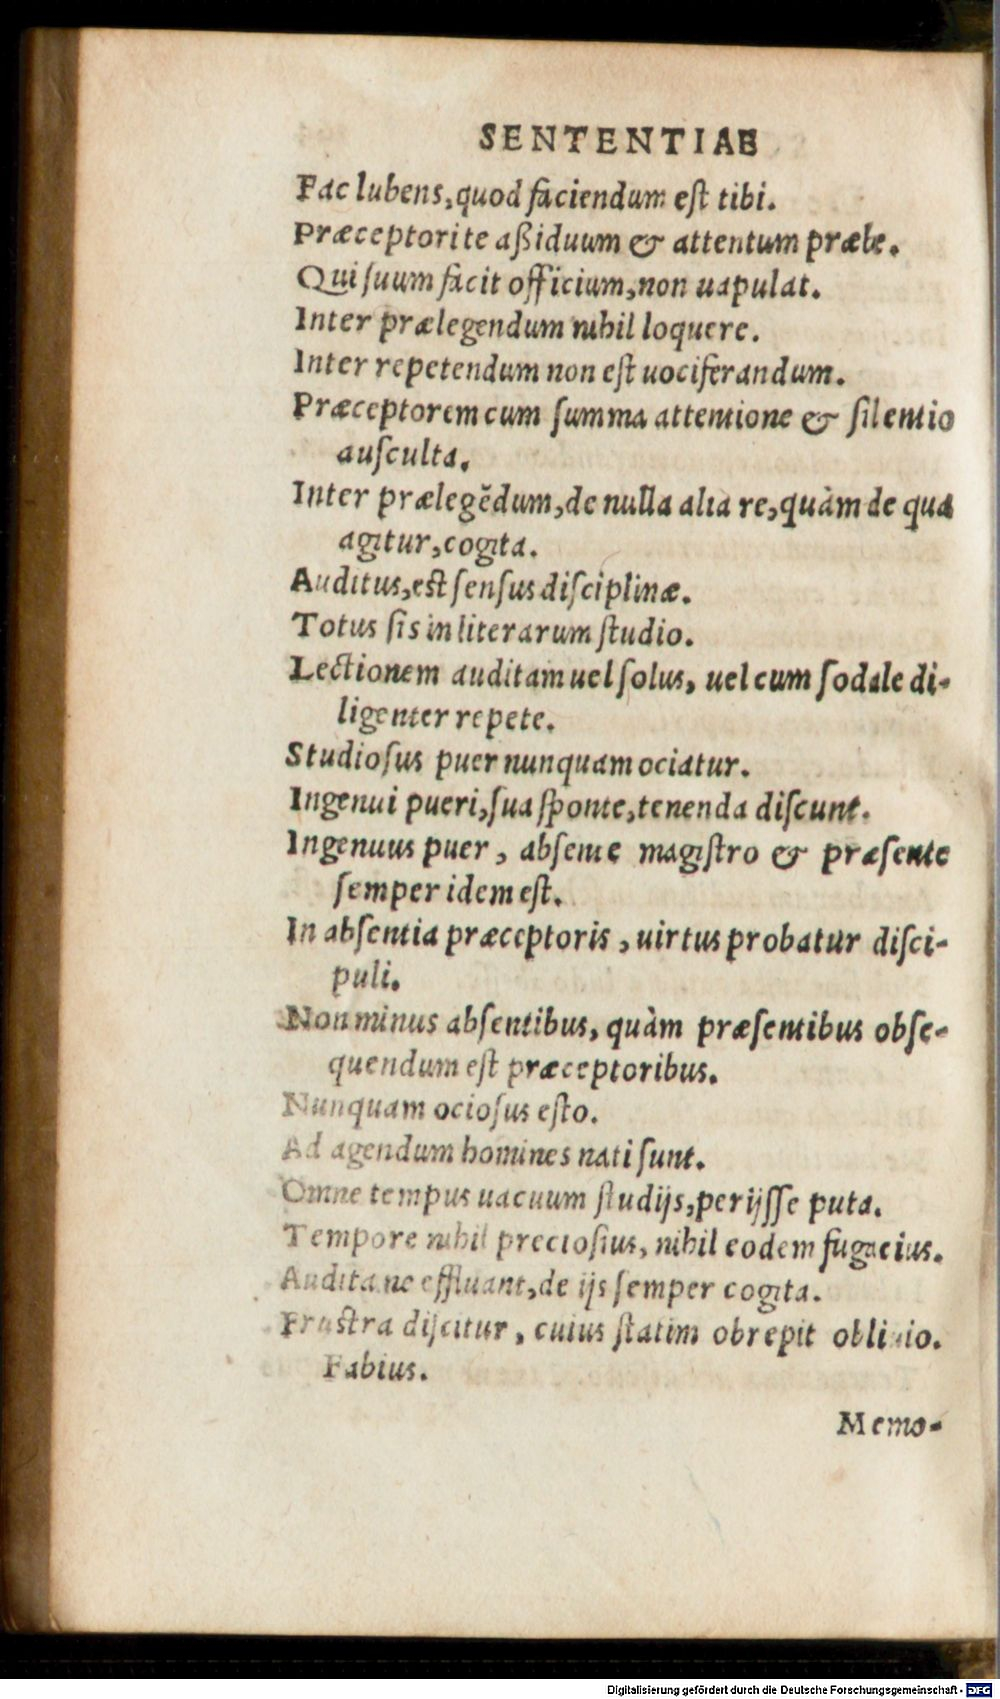 SENTENTIAE
Fac lubens, quod faciendum eſt tibi.
Præceptori te aßiduum & attentum præbe.
Qui ſuum facit officium, non uapulat.
Inter prælegendum nihil loquere.
Inter repetendum non eſt uociferandum.
Præceptorem cum ſumma attentione & ſilentio
auſculta.
Inter prælegẽdum, de nulla alia re, quàm de qua
agitur, cogita.
Auditus, eſt ſenſus diſciplinæ.
Totus ſis in literarum ſtudio.
Lectionem auditam uel ſolus, uel cum ſodale di-
ligenter repete.
Studioſus puer nunquam ociatur.
Ingenui pueri, ſua ſponte, tenenda diſcunt.
Ingenuus puer, abſente magiſtro & præſente
ſemper idem eſt.
In abſentia præceptoris, uirtus probatur diſci-
puli.
Non minus abſentibus, quàm præſentibus obſe-
quendum eſt præceptoribus.
Nunquam ocioſus eſto.
Ad agendum homines nati ſunt.
Omne tempus uacuum ſtudijs, perijſſe puta.
Tempore nihil precioſius, nihil eodem fugacius.
Audita ne effluant, de ijs ſemper cogita.
Fruſtra diſcitur, cuius ſtatim obrepit obliuio.
Fabius.
Memo-
Digitalisierung gefördert durch die Deutsche Forschungsgemeinschaft - DFG